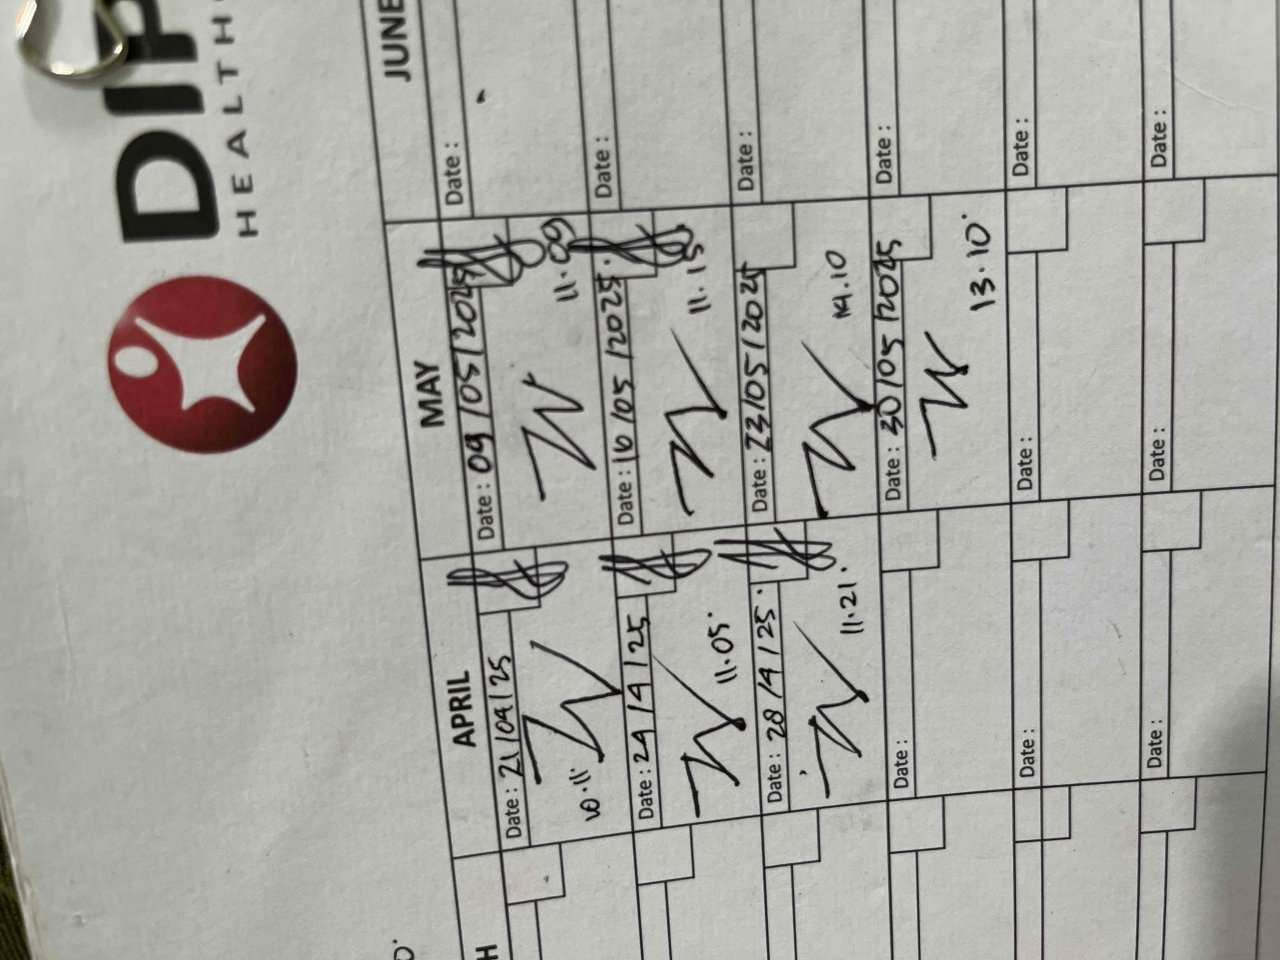 DIP
HEALTH
H
APRIL
MAY
JUNE
Date : 21/04/25
10.11
Date : 09/05/2025
11.09
Date :
Date : 24/4/25
11.05.
Date : 16/05/2025.
11.15
Date :
Date : 28/4/25.
11.21.
Date : 23/05/2025
14.10
Date :
Date :
Date : 30/05/2025
13.10.
Date :
Date :
Date :
Date :
Date :
Date :
Date :